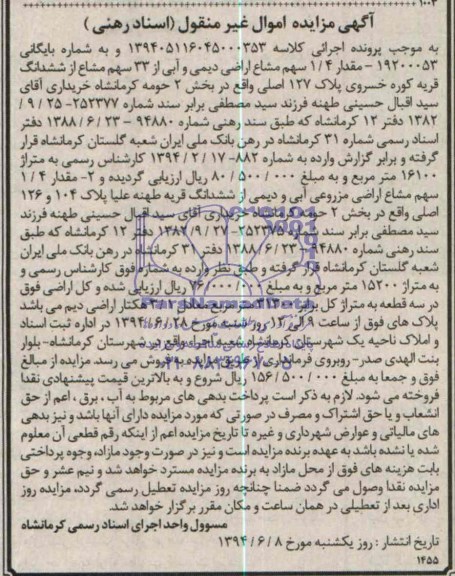 ۱۰۰۳
آگهی مزایده اموال غیر منقول (اسناد رهنی)
به موجب پرونده اجرائی کلاسه ۱۳۹۴۰۵۱۱۶۰۴۵۰۰۰۳۵۳ و به شماره بایگانی
۱۹۲۰۰۰۵۳ – مقدار ۱/۴ سهم مشاع اراضی دیمی و آبی از ۳۳ سهم مشاع از ششدانگ
قریه کوره خسروی پلاک ۱۲۷ اصلی واقع در بخش ۲ حومه کرمانشاه خریداری آقای
سید اقبال حسینی طهنه فرزند سید مصطفی برابر سند شماره ۲۵۲۳۷۷- ۲۵ / ۹ /
۱۳۸۲ دفتر ۱۲ کرمانشاه که طبق سند رهنی شماره ۹۴۸۸۰ – ۲۳ / ۶ / ۱۳۸۸ دفتر
اسناد رسمی شماره ۳۱ کرمانشاه در رهن بانک ملی ایران شعبه گلستان کرمانشاه قرار
گرفته و برابر گزارش وارده به شماره ۸۸۲- ۱۷ / ۲ / ۱۳۹۴ کارشناس رسمی به متراژ
۱۶۱۰۰ متر مربع و به مبلغ ۰۰۰ / ۵۰۰ / ۸۰ ریال ارزیابی گردیده و ۲- مقدار ۱/۴
سهم مشاع اراضی مزروعی آبی و دیمی از ششدانگ قریه طهنه علیا پلاک ۱۰۴ و ۱۲۶
اصلی واقع در بخش ۲ حومه کرمانشاه خریداری آقای سید اقبال حسینی طهنه فرزند
سید مصطفی برابر سند شماره ۲۵۲۳۷۵- ۲۷ / ۹ / ۱۳۸۲ دفتر ۱۲ کرمانشاه که طبق
سند رهنی شماره ۹۴۸۸۰ – ۲۳ / ۶ / ۱۳۸۸ دفتر ۳۱ کرمانشاه در رهن بانک ملی ایران
شعبه گلستان کرمانشاه قرار گرفته و طبق نظر وارده به شماره فوق کارشناس رسمی و
به متراژ ۱۵۲۰۰ متر مربع و به مبلغ ۰۰۰ / ۰۰۰ / ۷۶ ریال ارزیابی شده و کل اراضی فوق
در سه قطعه به متراژ کل برابر ۳۱۳۰۰ متر مربع معادل ۳/۱ هکتار اراضی دیم می باشد
پلاک های فوق از ساعت ۹ الی ۱۲ روز شنبه مورخ ۲۸ / ۶ / ۱۳۹۴ در اداره ثبت اسناد
و املاک ناحیه یک شهرستان کرمانشاه شعبه اجراء واقع در شهرستان کرمانشاه- بلوار
بنت الهدی صدر- روبروی فرمانداری از طریق مزایده به فروش می رسد. مزایده از مبالغ
فوق و جمعا به مبلغ ۰۰۰ / ۵۰۰ / ۱۵۶ ریال شروع و به بالاترین قیمت پیشنهادی نقدا
فروخته می شود. لازم به ذکر است پرداخت بدهی های مربوط به آب ، برق ، اعم از حق
انشعاب و یا حق اشتراک و مصرف در صورتی که مورد مزایده دارای آنها باشد و نیز بدهی
های مالیاتی و عوارض شهرداری و غیره تا تاریخ مزایده اعم از اینکه رقم قطعی آن معلوم
شده یا نشده باشد به عهده برنده مزایده است و نیز در صورت وجود مازاد، وجوه پرداختی
بابت هزینه های فوق از محل مازاد به برنده مزایده مسترد خواهد شد و نیم عشر و حق
مزایده نقدا وصول می گردد ضمنا چنانچه روز مزایده تعطیل رسمی گردد، مزایده روز
اداری بعد از تعطیلی در همان ساعت و مکان مقرر برگزار خواهد شد.
مسوول واحد اجرای اسناد رسمی کرمانشاه
تاریخ انتشار : روز یکشنبه مورخ ۸ / ۶ / ۱۳۹۴
۱۴۵۵